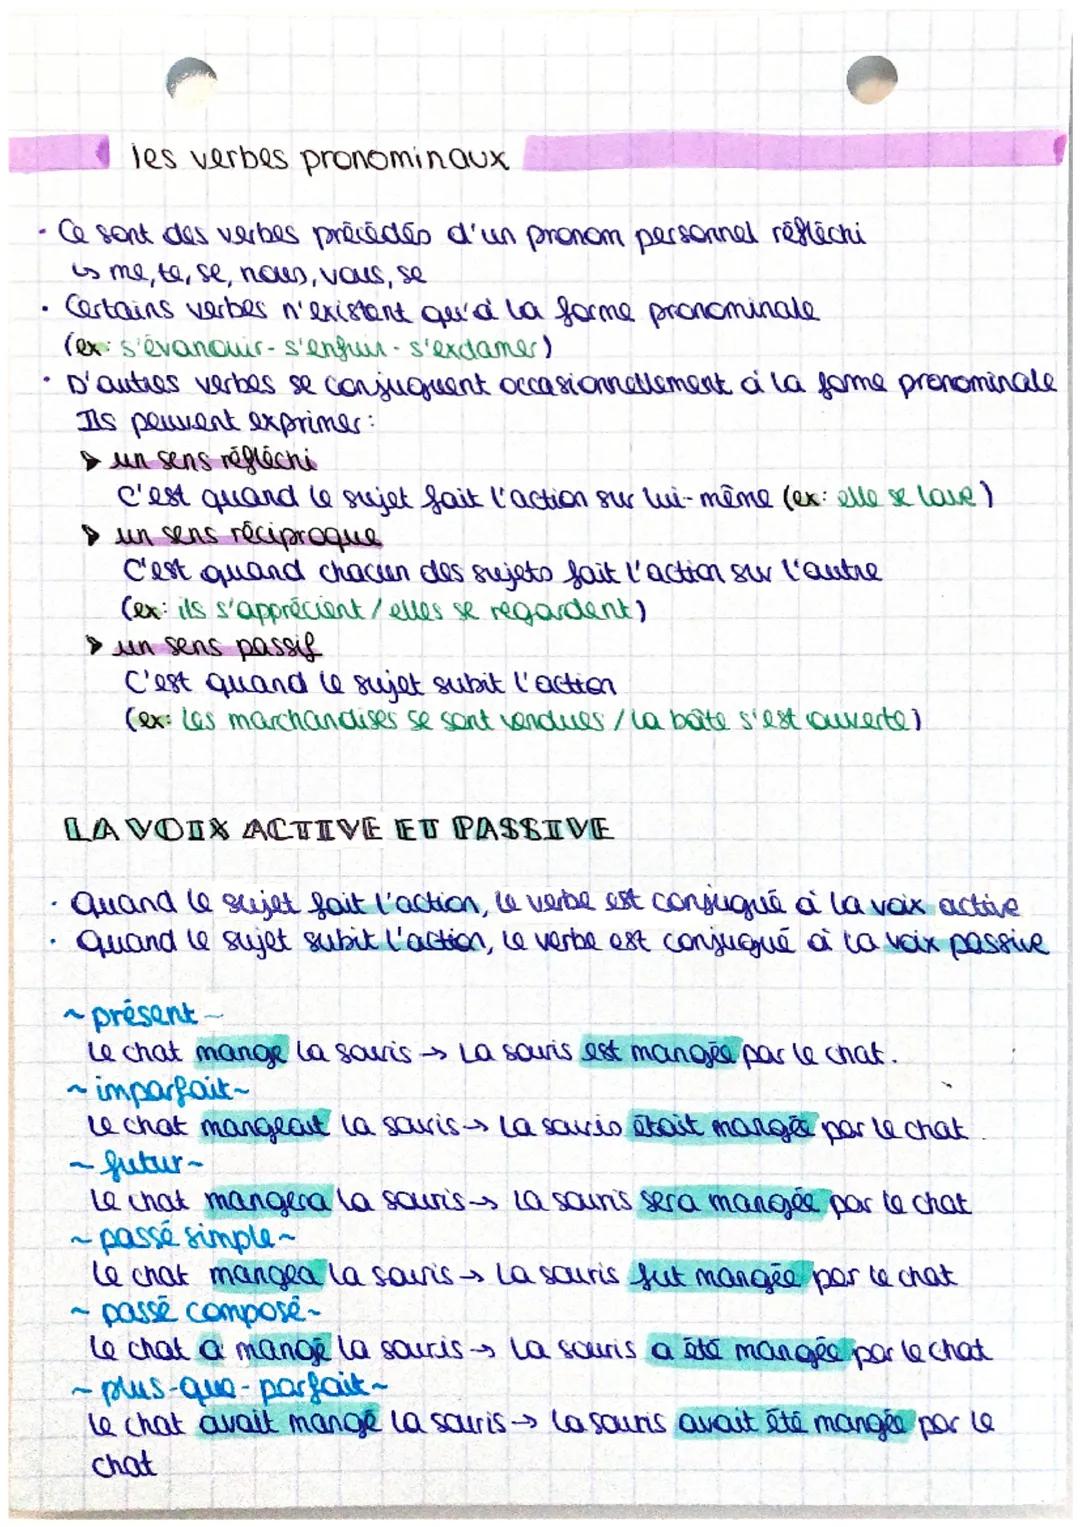 les verbes pronominaux
· Ce sont des verbes précédés d'un pronom personnel réfléchi
↳ me, te, se, nous, vous, se
· Certains verbes n'existent qu'à la forme pronominale
(ex: s'évanouir - s'enfuir - s'exclamer)
· D'autres verbes se conjuguent occasionnellement à la forme pronominale
Ils peuvent exprimer:
➤ un sens réfléchi
C'est quand le sujet fait l'action sur lui-même (ex: elle se lave)
➤ un sens réciproque
C'est quand chacun des sujets fait l'action sur l'autre
(ex: ils s'apprécient / elles se regardent)
➤ un sens passif
C'est quand le sujet subit l'action
(ex: Les marchandises se sont vendues / La boîte s'est ouverte)
LA VOIX ACTIVE ET PASSIVE
· Quand le sujet fait l'action, le verbe est conjugué à la voix active
· Quand le sujet subit l'action, le verbe est conjugué à la voix passive
~ présent ~
Le chat mange la souris → La souris est mangée par le chat.
~ imparfait ~
Le chat mangeait la souris → La souris était mangée par le chat.
~ futur ~
Le chat mangera la souris → La souris sera mangée par le chat
~ passé simple ~
Le chat mangea la souris → La souris fut mangée par le chat
~ passé composé ~
Le chat a mangé la souris → La souris a été mangée par le chat
~ plus-que-parfait ~
Le chat avait mangé la souris → La souris avait été mangée par le
chat